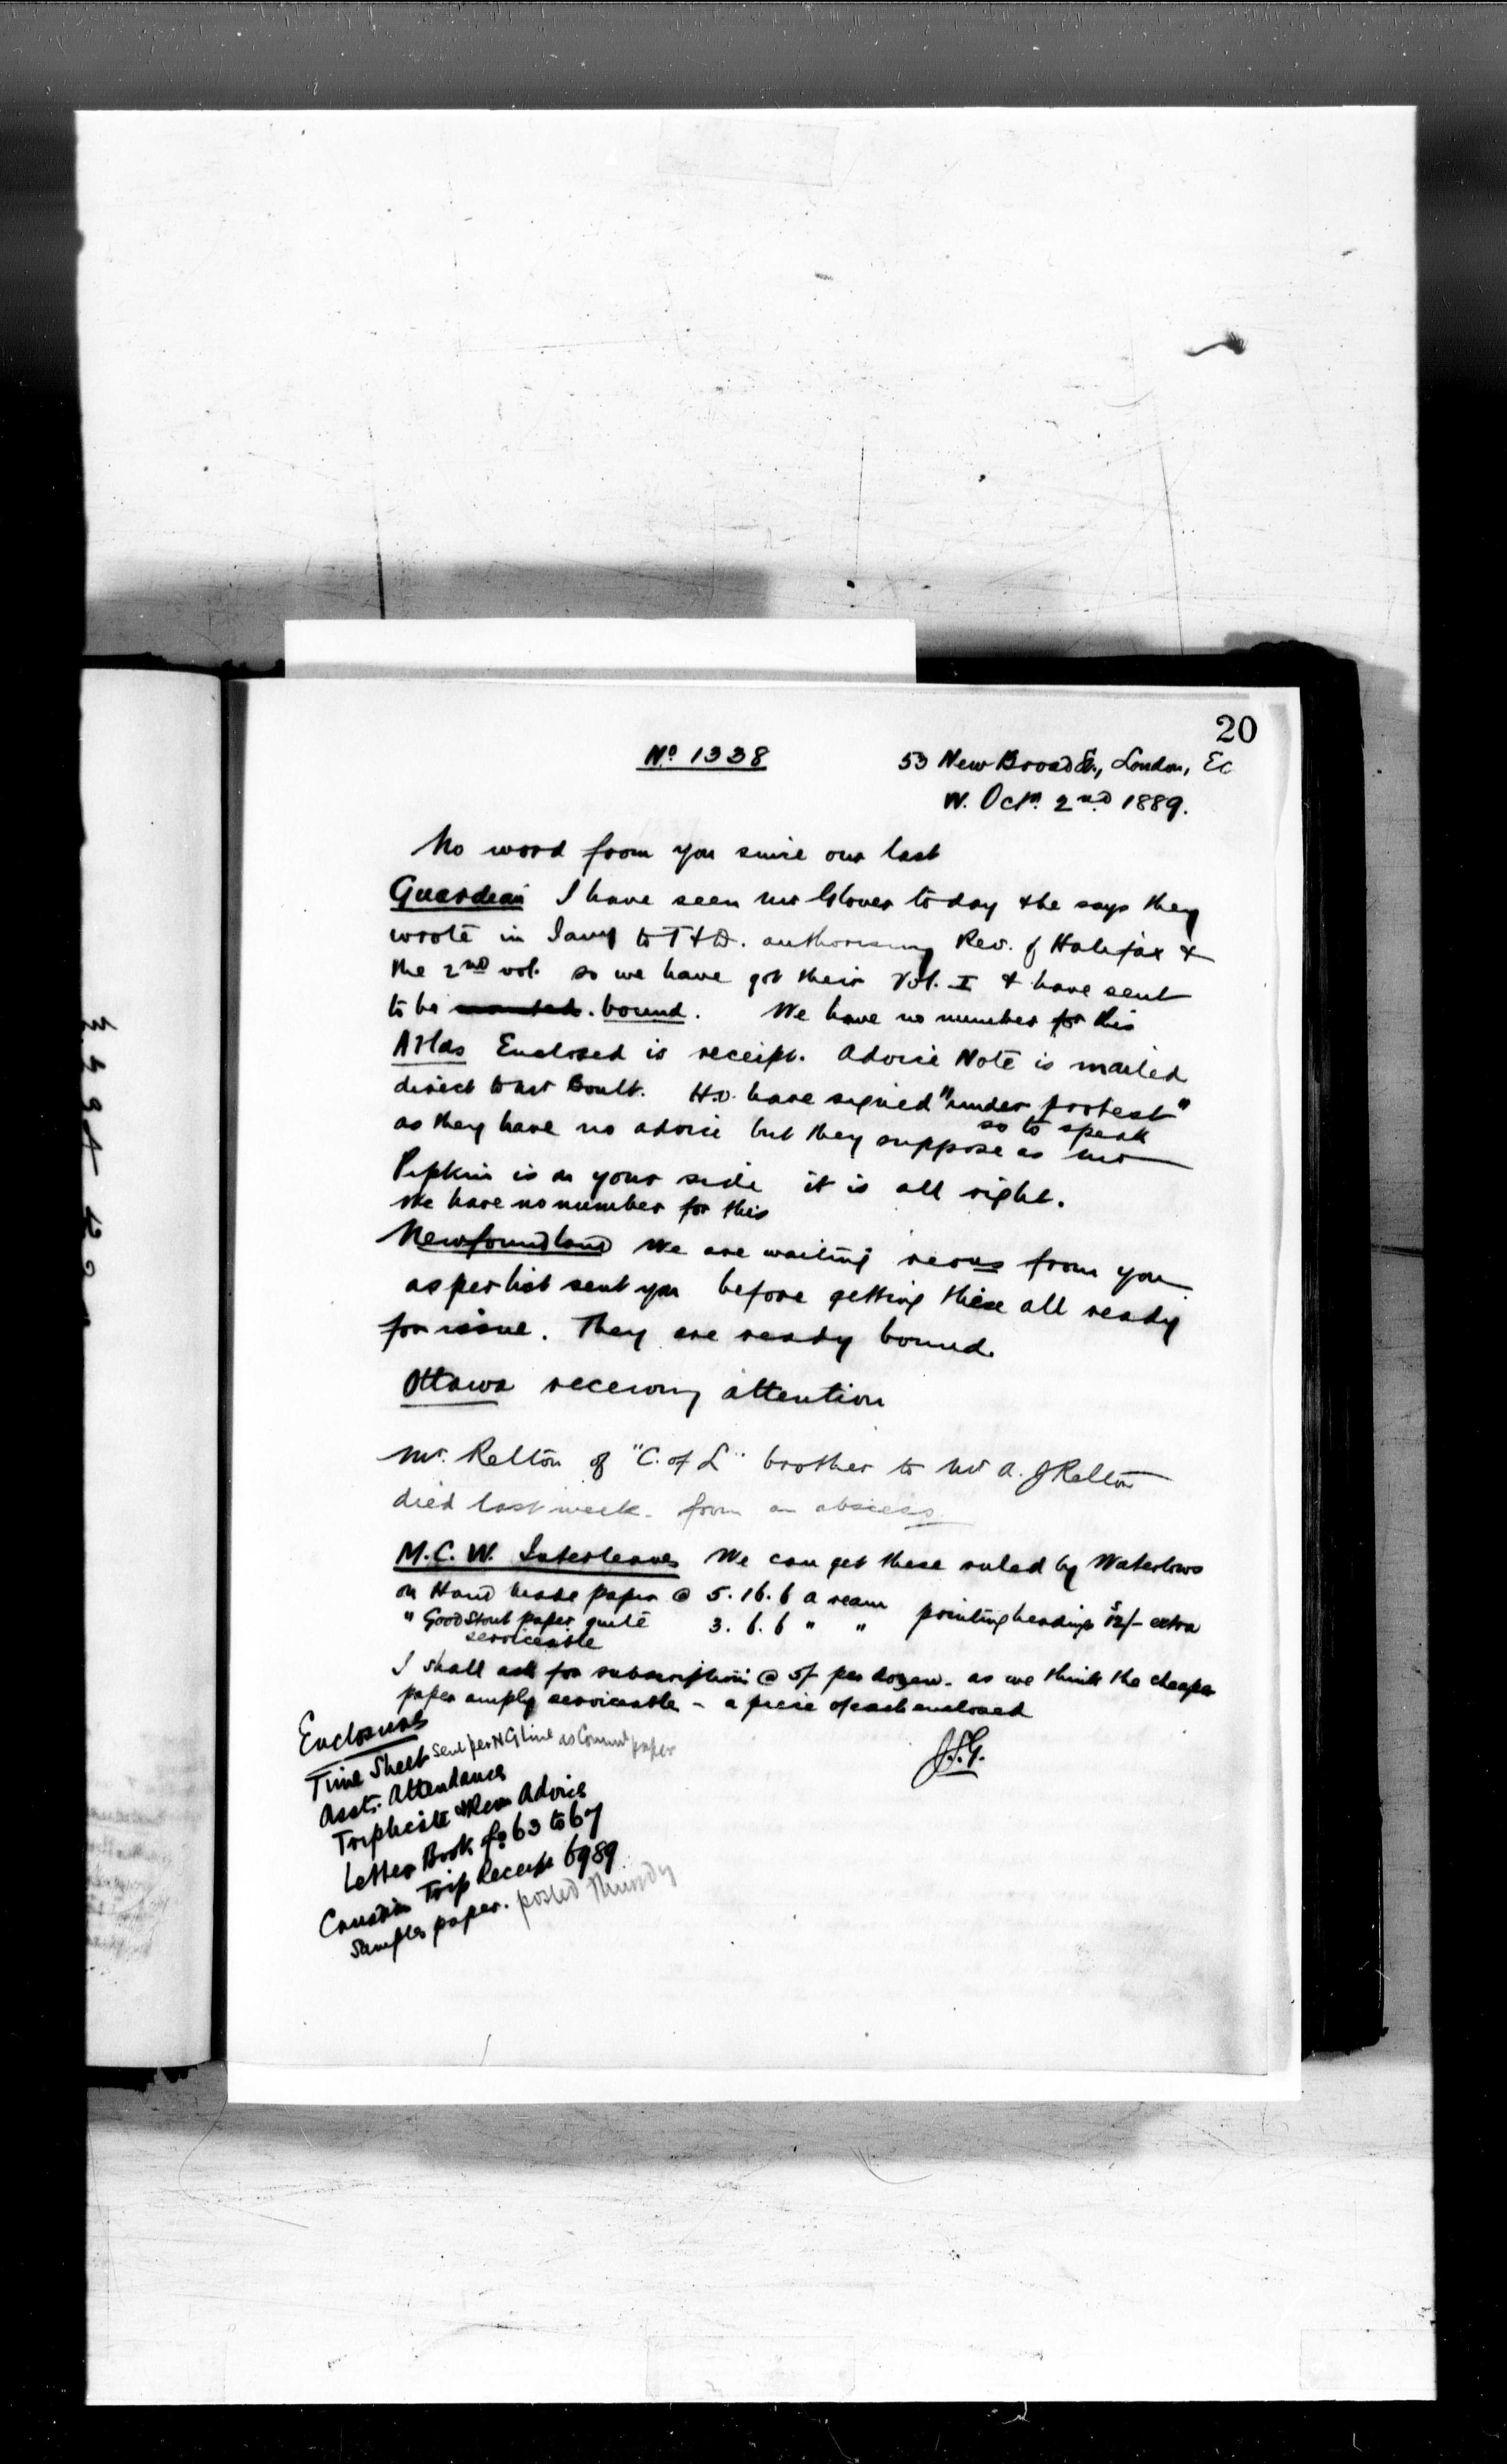 20
No 1338
53 New Broad St., London, EC
W. Octr. 2nd 1889.
No word from you since our last
Guardian I have seen Mr Glover today & he says they
wrote in Jany to T & D. authorising Rev. of Halifax &
the 2nd vol. so we have got their Vol. I & have sent
to be mounted. bound. We have no number for this
Atlas Enclosed is receipt. Advice Note is mailed
direct to Mr Boult. H.O. have signed "under protest"
so to speak
as they have no advice but they suppose as Mr
Pipkin is on your side it is all right.
We have no number for this
Newfoundland We are waiting from you
as per list sent you before getting these all ready
for issue. They are ready bound.
Ottawa receiving attention
Mr. Relton of "C. of L" brother to Mr A. J Relton
died last week. from an abscess
M.C.W. Interleaves We can get these ruled by Waterlows
on Hand made paper @ 5.16.6 a ream
" Good Stout paper quite 3.6.6 " " printing headings 12/- extra
serviceable
I shall ask for subscriptions @ 5/ per dozen. as we think the cheaper
paper amply serviceable - a piece of each enclosed
J.S.G.
Enclosures
Time Sheet sent per N G line as Comml paper
Asst. Attendance
Triplicate & Rem Advice
Letter Book fo 63 to 67
Canadian Trip Receipt 6989
Samples paper. posted Thursdy